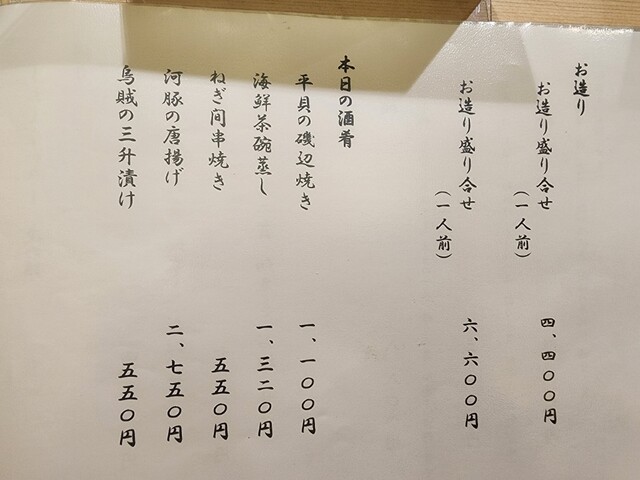 お造り
お造り盛り合せ 四、四〇〇円
(一人前)
お造り盛り合せ 六、六〇〇円
(一人前)
本日の酒肴
平貝の磯辺焼き 一、一〇〇円
海鮮茶碗蒸し 一、三二〇円
ねぎ間串焼き 五五〇円
河豚の唐揚げ 二、七五〇円
烏賊の三升漬け 五五〇円